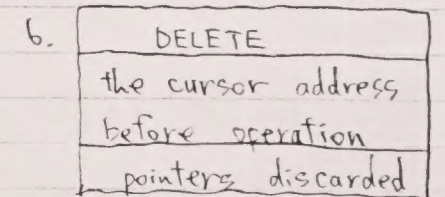 6. DELETE
the cursor address
before operation
pointers discarded